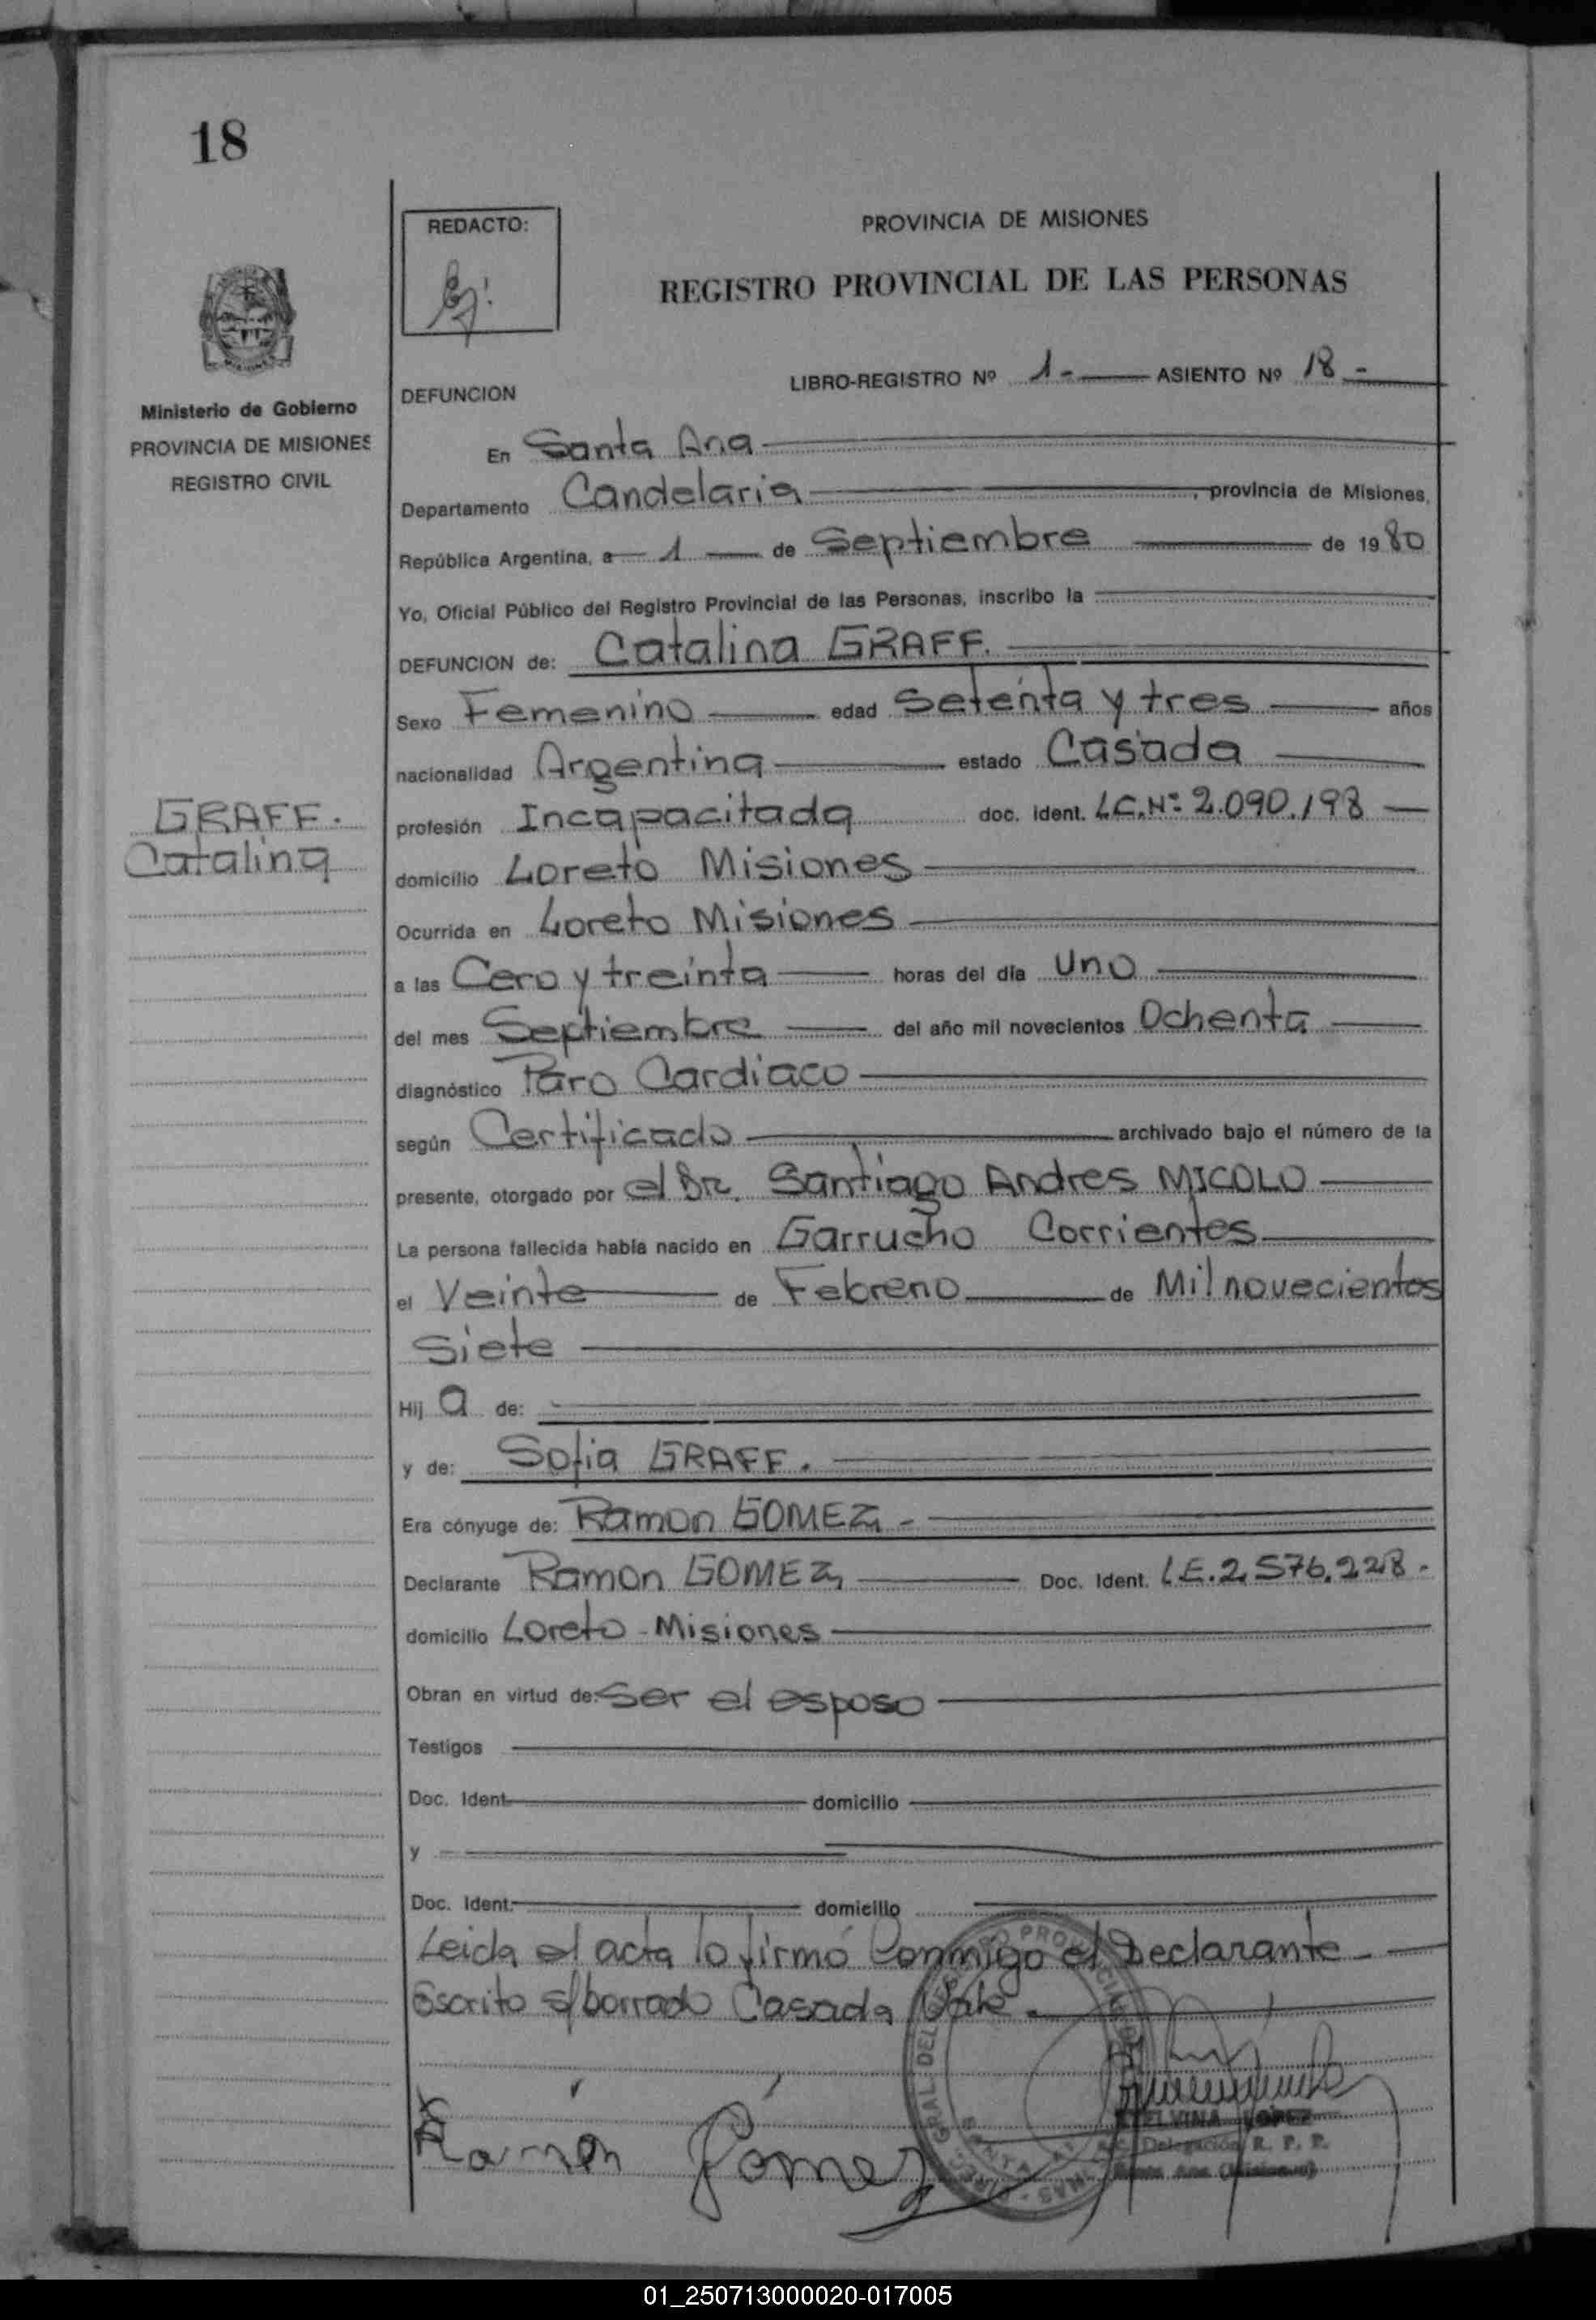 18
REDACTO:
PROVINCIA DE MISIONES
REGISTRO PROVINCIAL DE LAS PERSONAS
Ministerio de Gobierno
PROVINCIA DE MISIONES
REGISTRO CIVIL
DEFUNCION
LIBRO-REGISTRO Nº 1- ASIENTO Nº 18 -
En Santa Ana
Departamento Candelaria, provincia de Misiones,
República Argentina, a 1 de Septiembre de 1980
Yo, Oficial Público del Registro Provincial de las Personas, inscribo la
DEFUNCION de: Catalina GRAFF.
Sexo Femenino edad Setenta y tres años
nacionalidad Argentina estado Casada
GRAFF.
Catalina
profesión Incapacitada doc. ident. L.C. Nº 2.090.198
domicilio Loreto Misiones
Ocurrida en Loreto Misiones
a las Cero y treinta horas del día Uno
del mes Septiembre del año mil novecientos Ochenta
diagnóstico Paro Cardiaco
según Certificado archivado bajo el número de la
presente, otorgado por el Dr. Santiago Andres MICOLO
La persona fallecida había nacido en Garrucho Corrientes
el Veinte de Febrero de Mil novecientos
Siete
Hij a de:
y de: Sofia GRAFF.
Era cónyuge de: Ramon GOMEZ -
Declarante Ramon GOMEZ Doc. Ident. L.E. 2.576.228 -
domicilio Loreto - Misiones
Obran en virtud de: Ser el esposo
Testigos
Doc. Ident. domicilio
y
Doc. Ident. domicilio
Leida el acta lo firmó Conmigo el Declarante
Escrito s/borrado Casada Vale.
Ramón Gómez
ELVINA LOPEZ
Delegación R. P. P.
Santa Ana (Misiones)
01_250713000020-017005